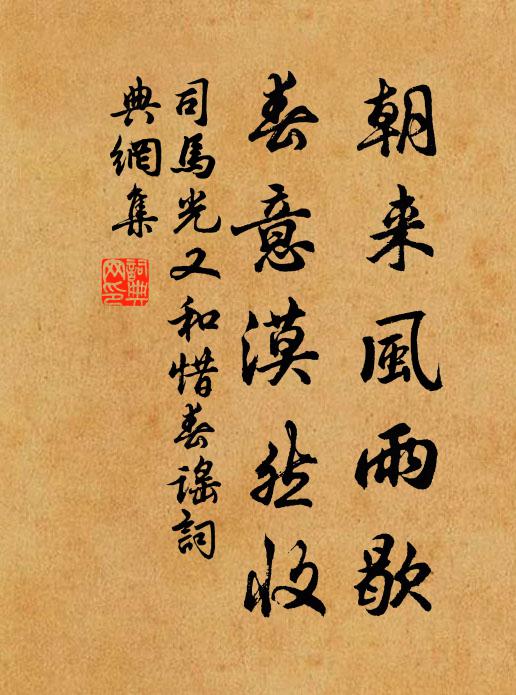 朝来風雨歇
春意漠然收
司馬光又和惜春謠詞
典網集
詞典
网印